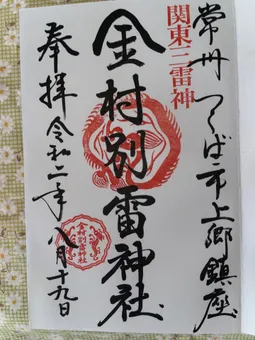 常州つくば市上郷鎮座
関東三雷神
金村別雷神社
奉拝 令和二年八月十九日